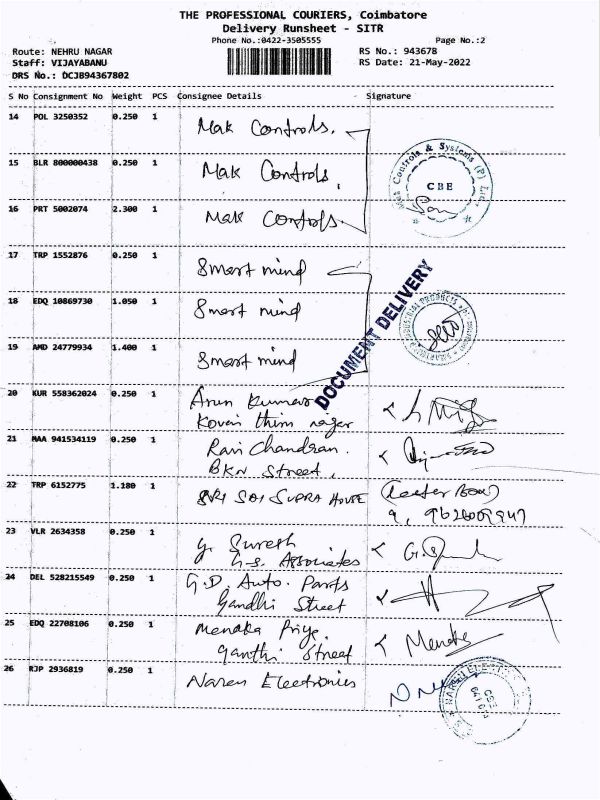 THE PROFESSIONAL COURIERS, Coimbatore
Delivery Runsheet - SITR
Phone No.:0422-3505555 Page No.:2
Route: NEHRU NAGAR RS No.: 943678
Staff: VIJAYABANU RS Date: 21-May-2022
DRS No.: DCJB94367802
S No Consignment No Weight PCS Consignee Details Signature
14 POL 3250352 0.250 1 Mak Controls.
15 BLR 800000438 0.250 1 Mak Controls.
Mak Controls & Systems (P) Ltd.
CBE
16 PRT 5002074 2.300 1 Mak Controls.
17 TRP 1552876 0.250 1 Smart mind
DOCUMENT DELIVERY
18 EDQ 10869730 1.050 1 Smart mind
INDUSTRIAL PRODUCTS
19 AMD 24779934 1.400 1 Smart mind
20 KUR 558362024 0.250 1 Arun Kumar
Kovai thiru nager
21 MAA 941534119 0.250 1 Ravi Chandran.
BKN Street.
22 TRP 6152775 1.180 1 SRI SAI SUPRA HOUSE (Letter Box)
23 VLR 2634358 0.250 1 y. Suresh
G.S. Associates
24 DEL 528215549 0.250 1 G.D. Auto. Parts
Gandhi Street
25 EDQ 22708106 0.250 1 Menaka Priye. Menaka
ganthi Street
26 RJP 2936819 0.250 1 Naren Electronics
CBE